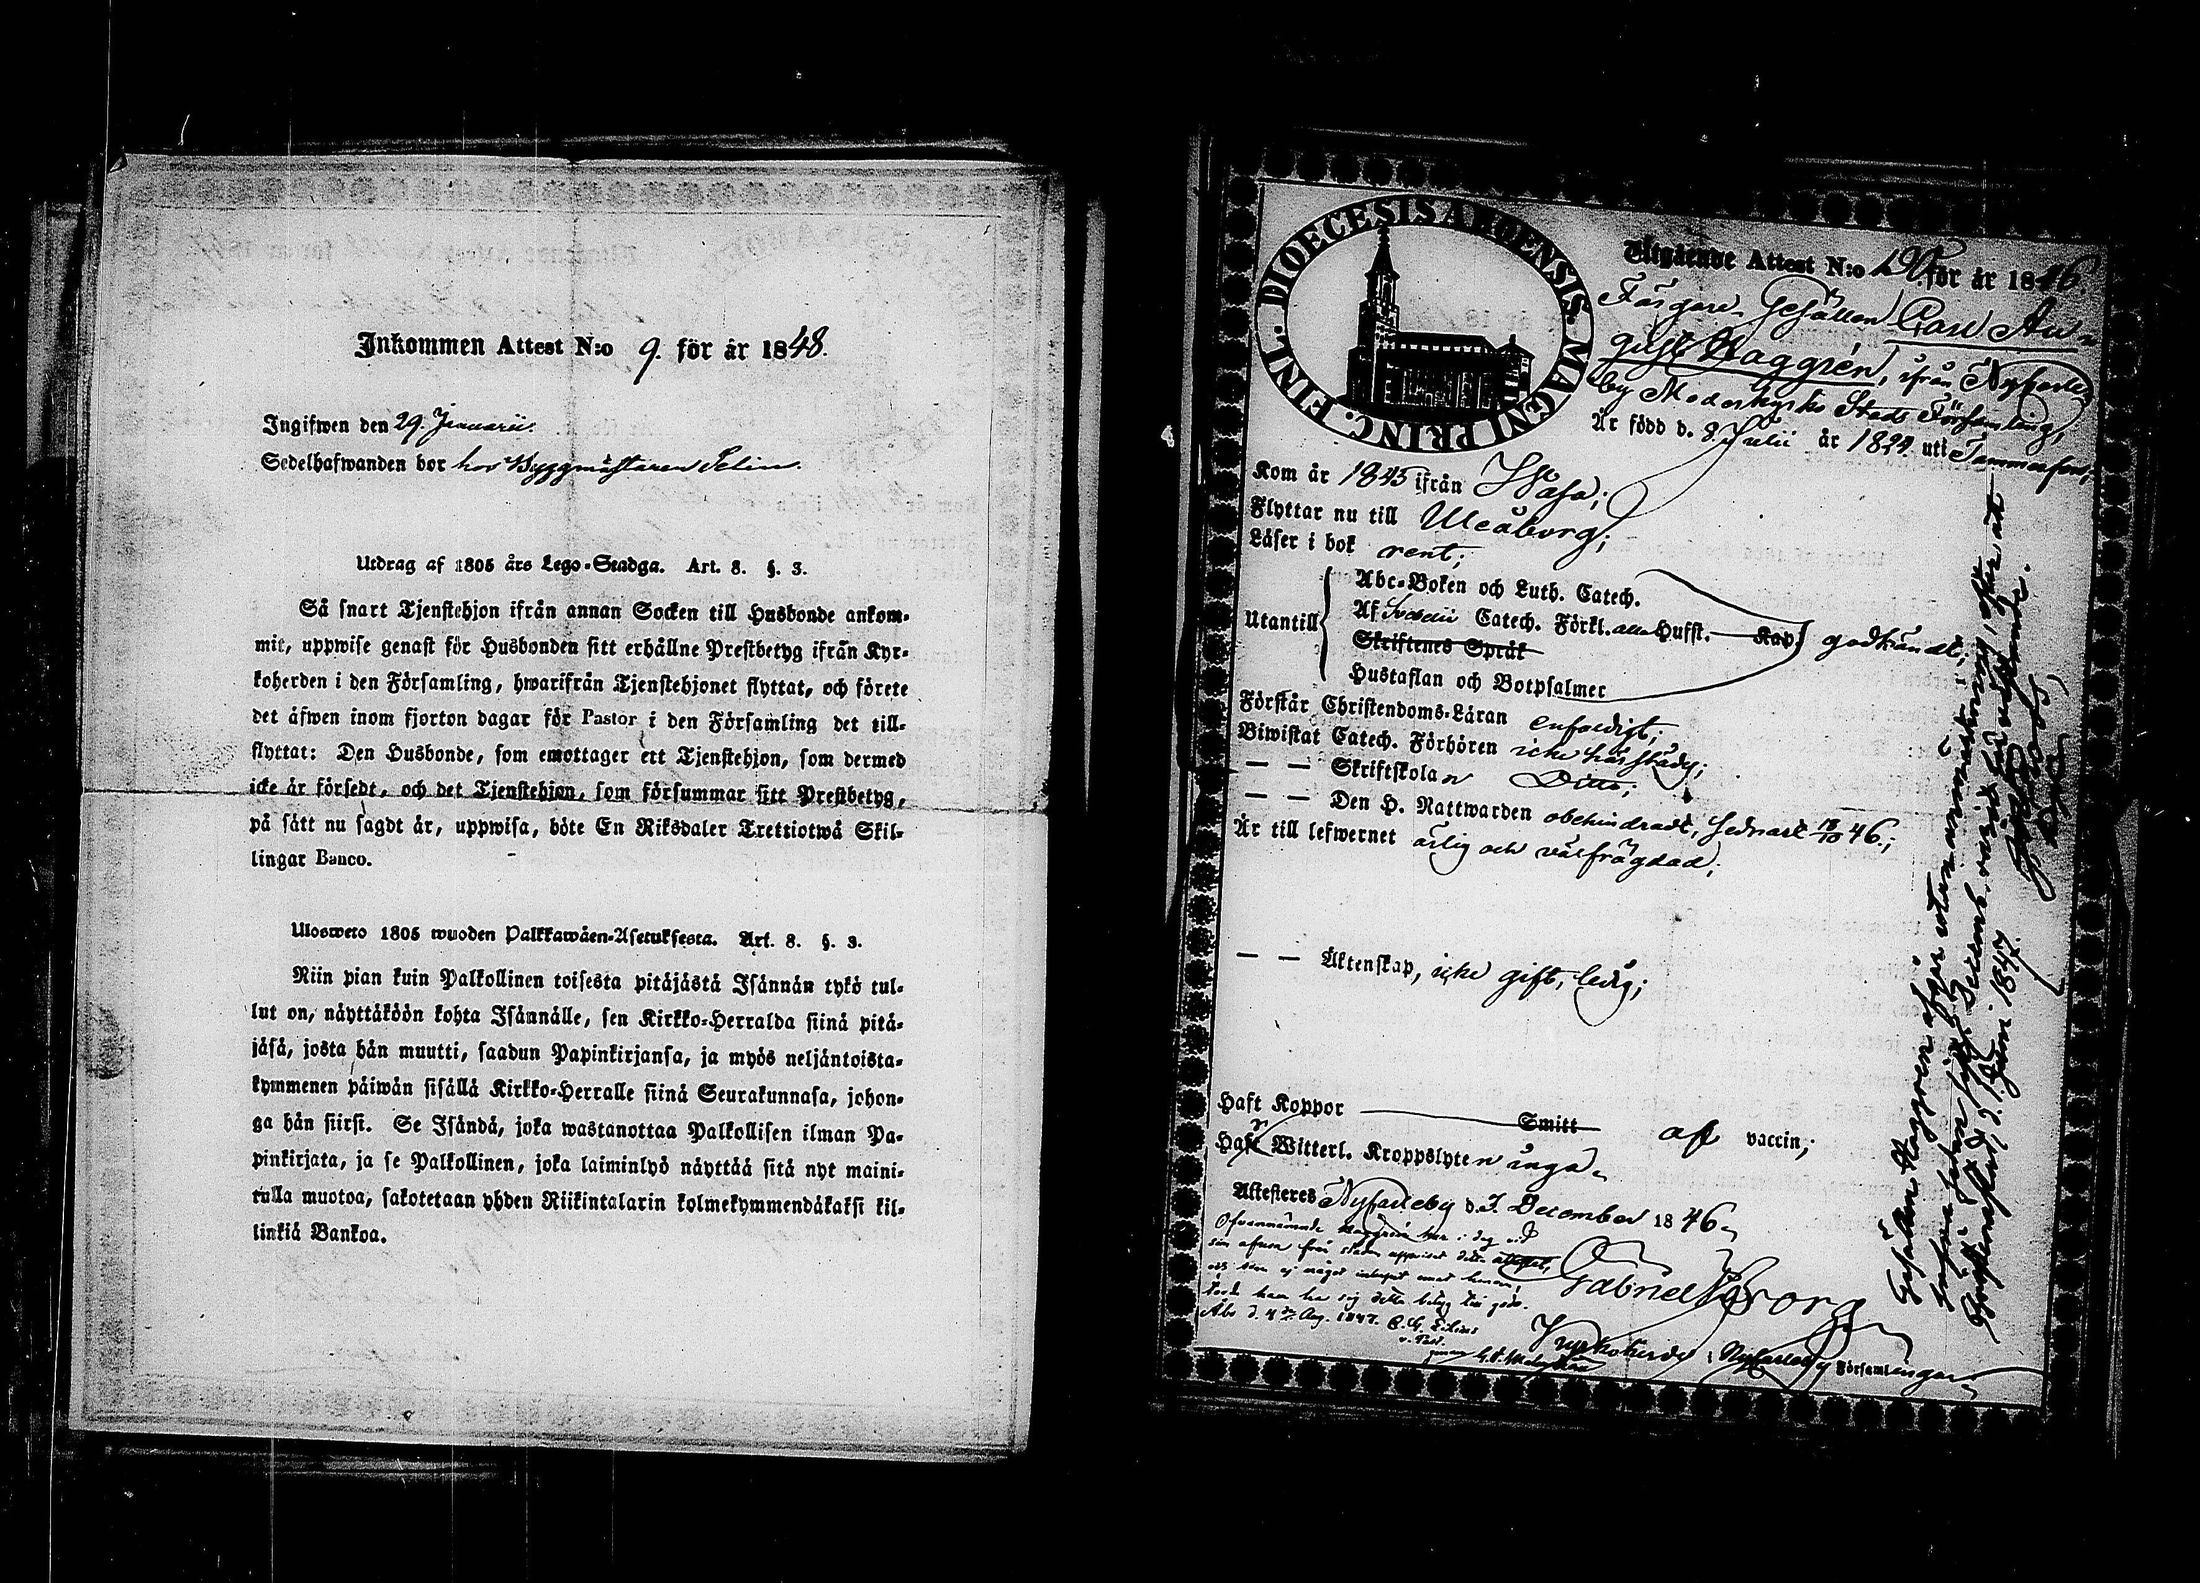 Inkommen Attest N:o 9. för år 1848.
Ingifwen den 29. Januarii.
Sedelhafwanden bor hos Byggmästaren Selin.
Utdrag af 1805 års Lego-Stadga. Art. 8. §. 3.
Så snart Tjenstehjon ifrån annan Socken till Husbonde ankom-
mit, uppwise genast för Husbonden sitt erhållne Prestbetyg ifrån Kyr-
koherden i den Församling, hwarifrån Tjenstehjonet flyttat, och förete
det äfwen inom fjorton dagar för Pastor i den Församling det till-
flyttat: Den Husbonde, som emottager ett Tjenstehjon, som dermed
icke är försedt, och det Tjenstehjon, som försummar sitt Prestbetyg,
på sätt nu sagdt är, uppwisa, böte En Riksdaler Trettiotwå Skil-
lingar Banco.
Ulosweto 1805 wuoden Palkkawäen-Asetuksesta. Art. 8. §. 3.
Niin pian kuin Palkollinen toisesta pitäjästä Isännän tykö tul-
lut on, näyttäköön kohta Isännälle, sen Kirkko-Herralda siinä pitä-
jäsä, josta hän muutti, saadun Papinkirjansa, ja myös neljäntoista-
kymmenen päiwän sisällä Kirkko-Herralle siinä Seurakunnasa, johon-
ga hän siirsi. Se Isändä, joka wastanottaa Palkollisen ilman Pa-
pinkirjata, ja se Palkollinen, joka laiminlyö näyttää sitä nyt maini-
tulla muotoa, sakotetaan yhden Riikintalarin kolmekymmendäkaksi kil-
linkiä Bankoa.
FINL. DIOECESIS ABOENSIS. MAGNI PRINC.
Utgående Attest N:o för år 1846.
Färgare Gesällen Carl Au-
gust Haggrén, ifrån Nykarle-
by Moderkyrko Stads Församling,
Är född d. 8. Julii år 1824 uti Tammerfors;
Kom år 1845 ifrån Wasa;
Flyttar nu till Uleåborg;
Läser i bok rent;
Utantill
Abc-Boken och Luth. Catech.
Af Svebelii Catech. Förkl. alla Hufst. Kap.
Skriftenes Språk
Hustaflan och Botpsalmer
godkändt;
Förstår Christendoms-Läran enfaldigt;
Biwistat Catech. Förhören icke härstädes;
— — Skriftskolan Ditto;
— — Den H. Nattwarden obehindradt, sednast 18/10 46.;
Är till lefwernet ärlig och välfrägdad;
— — Äktenskap, icke gift, ledig;
Haft Koppor Smitt af vaccin;
Har Witterl. Kroppslyten inga.
Attesteres Nykarleby d. 7. December 1846.
Ofvannämnde Haggrén har i dag vid
sin afresa från staden uppvisat detta attest,
och som ej något inlupit emot honom,
Åbo d. 4de Aug. 1847.
Gabriel Borg
Kyrkoherde i Nykarleby Församlingar
Gesällen Haggrén afgår utan anmärkning, efter att
hafva sedan sistl. December varit härvistande.
d. 1. Juni 1847.